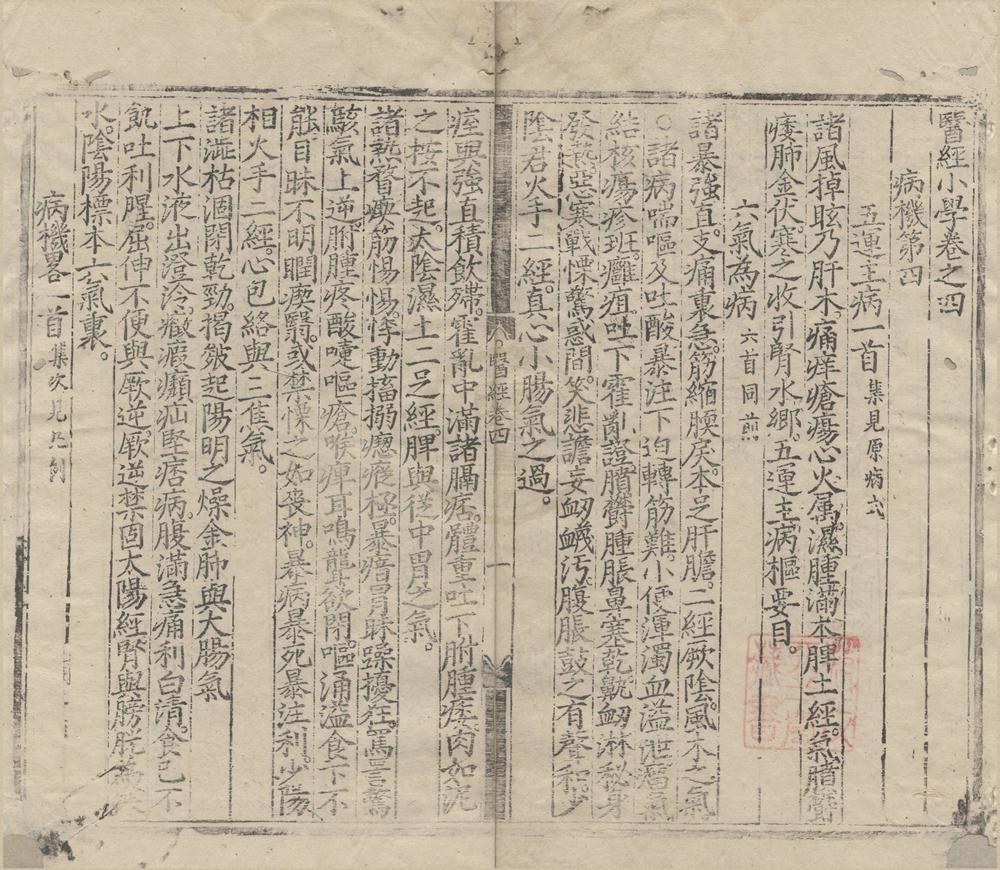 醫經小學卷之四
病機第四
五運主病一首 集見原病式
諸風掉眩乃肝木。痛痒瘡瘍心火属。濕腫滿本脾土經。氣膹鬱
痿肺金伏。寒之收引腎水鄉。五運主病樞要目。
六氣為病 六首同前
諸暴強直。支痛裏急。筋縮䐜戾。本足肝膽。二經厥陰。風木之氣
○諸病喘嘔及吐酸暴注下迫轉筋難。小便渾濁血溢泄瘤氣
結核瘍疹班。癰疽。吐下霍亂證。膹鬱腫脹鼻塞乾。鼽衂淋秘身
發熱。惡寒戰慄驚惑間。笑悲譫妄衂衊汚。腹脹鼓之有聲和。少
陰君火手二經。真心小腸氣之過。
醫經卷四 一
痓與強直積飲殢。霍亂中滿諸膈痞。體重吐下胕腫痿。肉如泥
之按不起。太陰濕土二足經。脾與從中胃之氣。
諸熱瞀瘛筋惕惕。悸動搐搦瘛瘲極。暴瘖冒昧躁擾狂。罵詈驚
駭氣上逆。胕腫疼酸嚏嘔瘡。喉痺耳鳴聾欲閉。嘔涌溢食下不
能。目昧不明瞤瘛翳。或禁慄之如喪神。暴病暴死暴注利。少陽
相火手二經。心包絡與三焦氣。
諸澁枯涸閉。乾勁。揭皴起。陽明之燥金。肺與大腸氣
上下水液出澄冷。癥瘕㿗疝堅痞病。腹滿急痛利白清。食已不
飢吐利腥。屈伸不便與厥逆。厥逆禁固太陽經。腎與膀胱為寒
水。陰陽標本六氣裏。
病機畧一首 集次見凡例